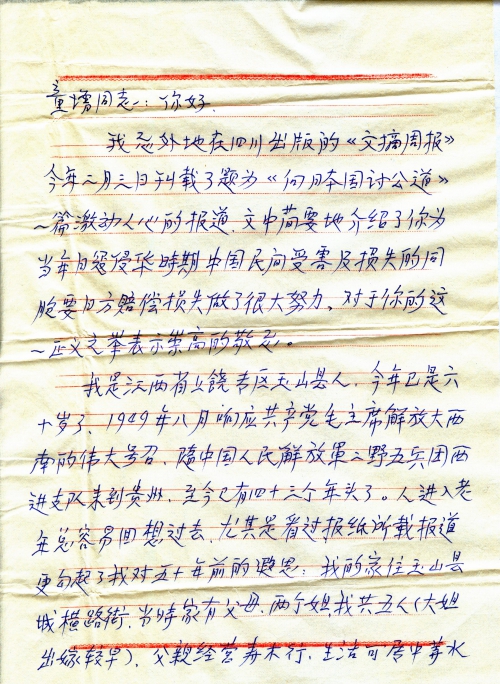 童增同志：你好.
我意外地在四川出版的《文摘周报》
今年二月三日刊载了题为《向日本国讨公道》
一篇激动人心的报道，文中简要地介绍了你为
当年日寇侵华时期中国民间受害及损失的同
胞要日方赔偿损失做了很大努力，对于你的这
一正义之举表示崇高的敬意。
我是江西省上饶专区玉山县人，今年已是六
十岁了，1949年八月响应共产党毛主席解放大西
南的伟大号召，随中国人民解放军二野五兵团西
进支队来到贵州，至今已有四十三个年头了。人进入老
年总容易回想过去，尤其是看过报纸所载报道
更勾起了我对五十年前的遐思：我的家住玉山县
城横路街，当时家有父母，两个姐，我共五人（大姐
出嫁较早），父亲经营寿木行，生活可居中等水